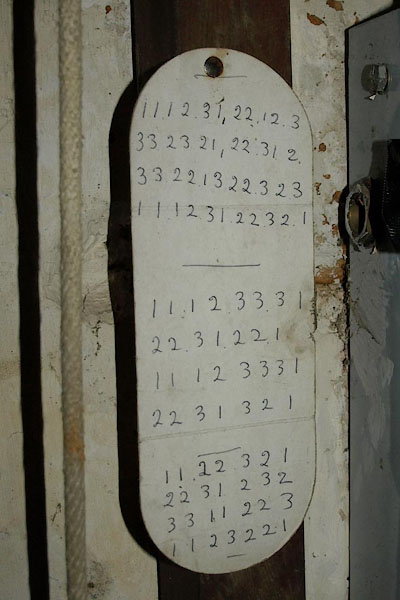 11.12.31,22.12.3
33 23 21,22.31 2.
33 22 13 22.3 23
11.12 31.2232.1
11.12 33.31
22.31.221
11 12 3331
22 31 321
11.22 321
22 31 232
33 11 223
11 23221